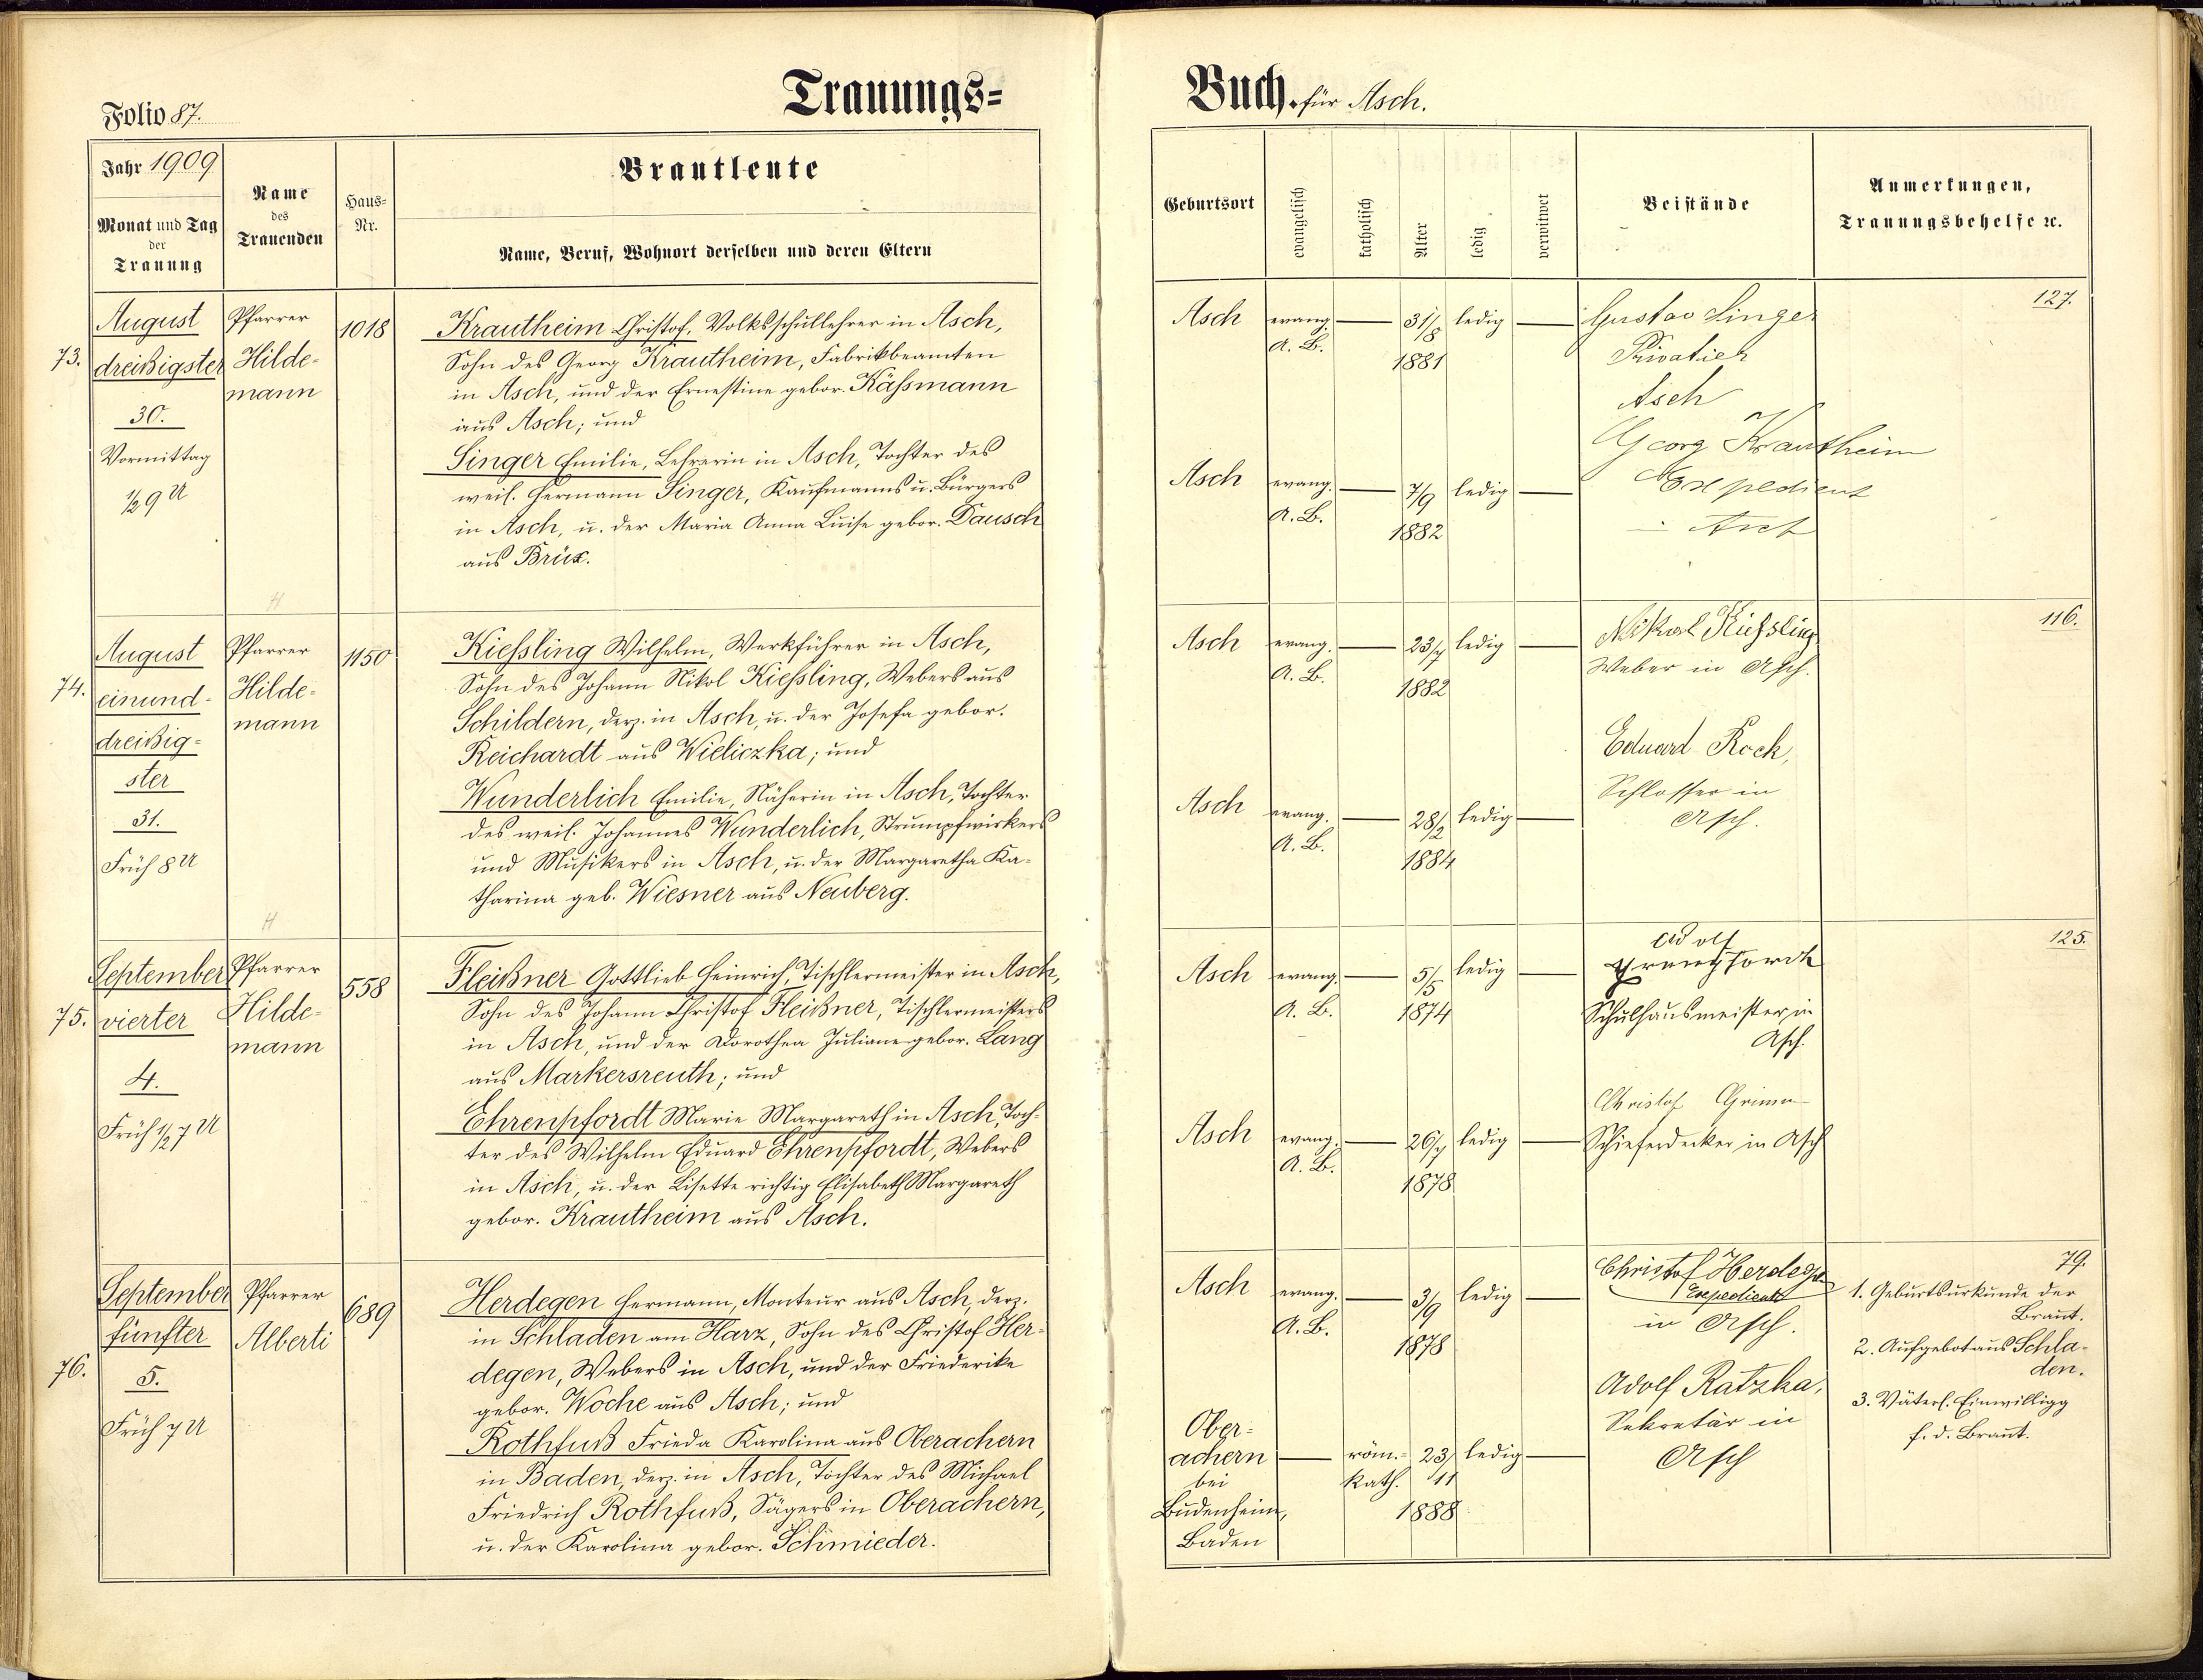 Trauungs=
Buch. für Asch.
Folio 87.
Jahr 1909
Monat und Tag
der
Trauung
Name
des
Trauenden
Haus=
Nr.
Brautleute
Name, Beruf, Wohnort derselben und deren Eltern
Geburtsort
evangelisch
katholisch
Alter
ledig
verwitwet
Beistände
Anmerkungen,
Trauungsbehelfe ꝛc.
73.
August
dreißigster
30.
Vormittag
½9 U
Pfarrer
Hilde-
mann
1018
Krautheim Christof, Volksschullehrer in Asch,
Sohn des Georg Krautheim, Fabrikbeamten
in Asch, und der Ernestine gebor. Käſsmann
aus Asch; und
Singer Emilie, Lehrerin in Asch, Tochter des
weil. Hermann Singer, Kaufmanns u. Bürgers
in Asch, u. der Maria Anna Luise gebor. Dausch
aus Brüx.
Asch
evang.
A. B.
31/8
1881
ledig
Asch
evang.
A. B.
7/9
1882
ledig
Gustav Singer
Privatier
Asch
Georg Krautheim
Expedient
Asch
127.
74.
August
einund-
dreißig-
ster
31.
Früh 8 U
Pfarrer
Hilde-
mann
H
1150
Kieſsling Wilhelm, Werkführer in Asch,
Sohn des Johann Nikol Kieſsling, Webers aus
Schildern, derz. in Asch, u. der Josefa gebor.
Reichardt aus Wieliczka; und
Wunderlich Emilie, Näherin in Asch, Tochter
des weil. Johannes Wunderlich, Strumpfwirkers
und Musikers in Asch, u. der Margaretha Ka-
tharina geb. Wiesner aus Neuberg.
Asch
evang.
A. B.
23/7
1882
ledig
Asch
evang.
A. B.
28/2
1884
ledig
Nikol Kieſsling
Weber in Asch.
Eduard Rock,
Schlosser in
Asch.
116.
75.
September
vierter
4.
Früh ½7 U
Pfarrer
Hilde-
mann
H
558
Fleißner Gottlieb Heinrich, Tischlermeister in Asch,
Sohn des Johann Christof Fleißner, Tischlermeisters
in Asch, und der Dorothea Juliane gebor. Lang
aus Markersreuth; und
Ehrenpfordt Marie Margareth in Asch, Toch-
ter des Wilhelm Eduard Ehrenpfordt, Webers
in Asch, u. der Lisette richtig Elisabeth Margareth
gebor. Krautheim aus Asch.
Asch
evang.
A. B.
5/5
1874
ledig
Asch
evang.
A. B.
26/7
1878
ledig
Schulhausmeister in
Asch.
Christof Grimm
Schieferdecker in Asch
125.
76.
September
fünfter
5.
Früh 7 U
Pfarrer
Alberti
689
Herdegen Hermann, Monteur aus Asch, derz.
in Schladen am Harz, Sohn des Christof Her-
degen, Webers in Asch, und der Friederike
gebor. Woche aus Asch; und
Rothfuß Frieda Karolina aus Oberachern
in Baden, derz. in Asch, Tochter des Michael
Friedrich Rothfuß, Sägers in Oberachern,
u. der Karolina gebor. Schmieder.
Asch
evang.
A. B.
3/9
1878
ledig
Ober-
achern
bei
Budenheim,
Baden
röm.-
kath.
23/11
1888
ledig
Christof Herdegen
Expedient
in Asch.
Adolf Ratzka,
Sekretär in
Asch
79.
1. Geburtsurkunde der
Braut.
2. Aufgebot aus Schla-
den.
3. Väterl. Einwilligg
f. d. Braut.